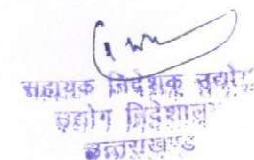 सहायक निदेशक उद्योग
उद्योग निदेशालय
उत्तराखण्ड